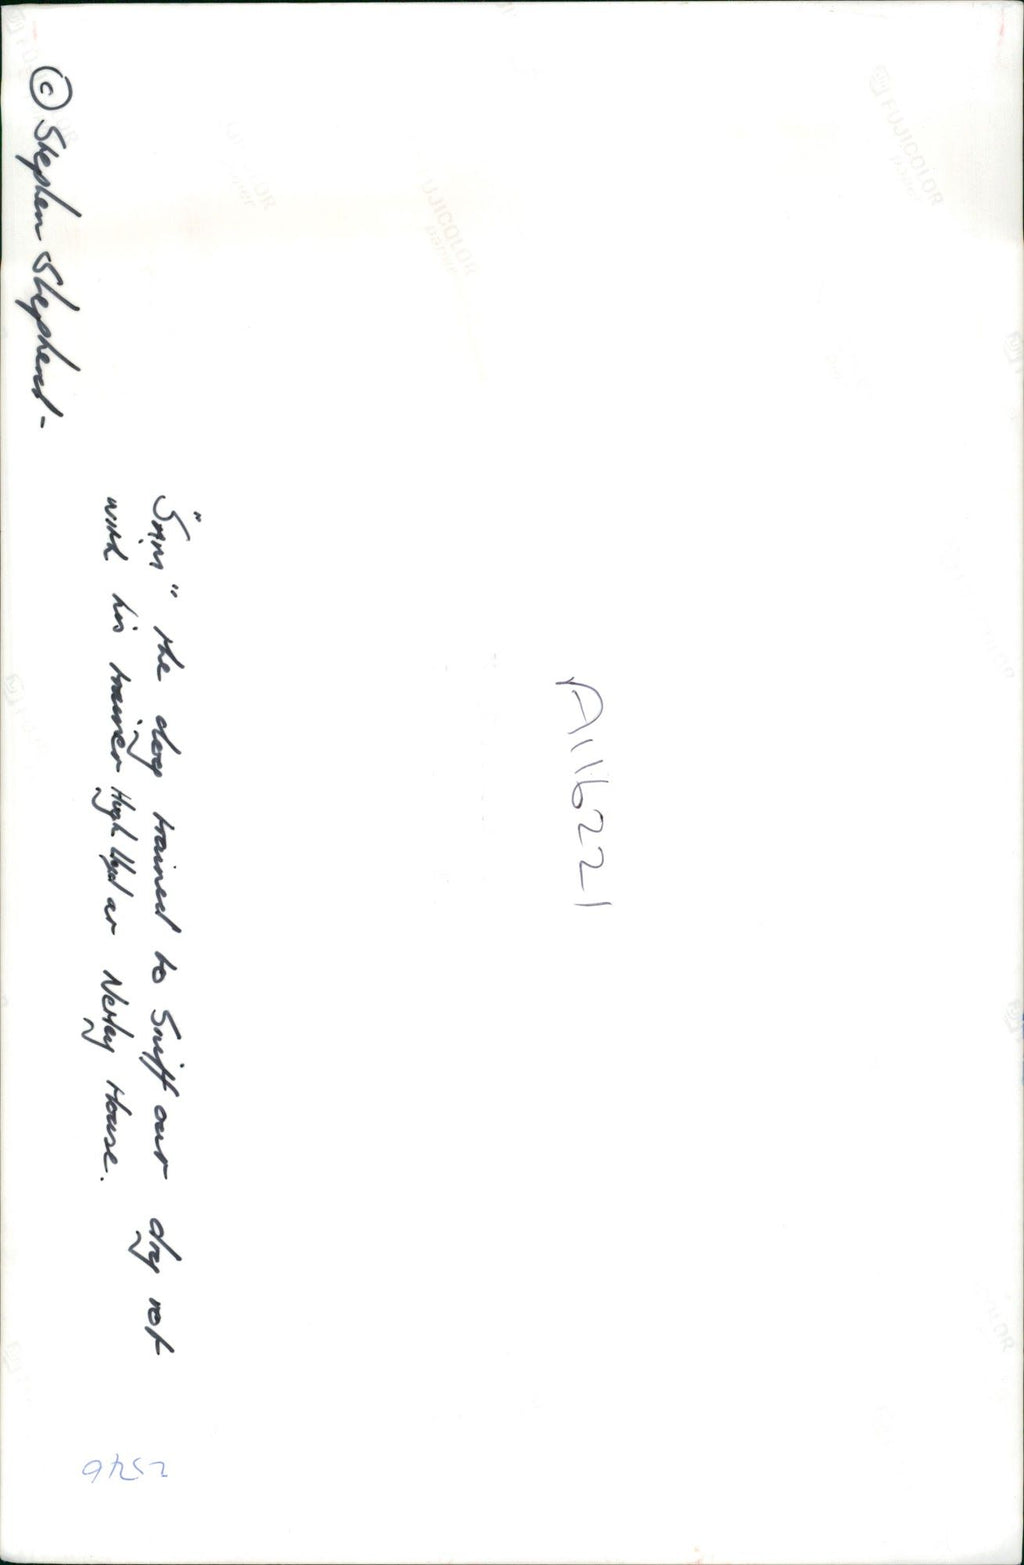 © Stephen Shepherd -
"Sam" the dog trained to Sniff out dry rot
with his trainer Hugh Lloyd at Netley House.
A1116221
2546
FUJICOLOR
paper